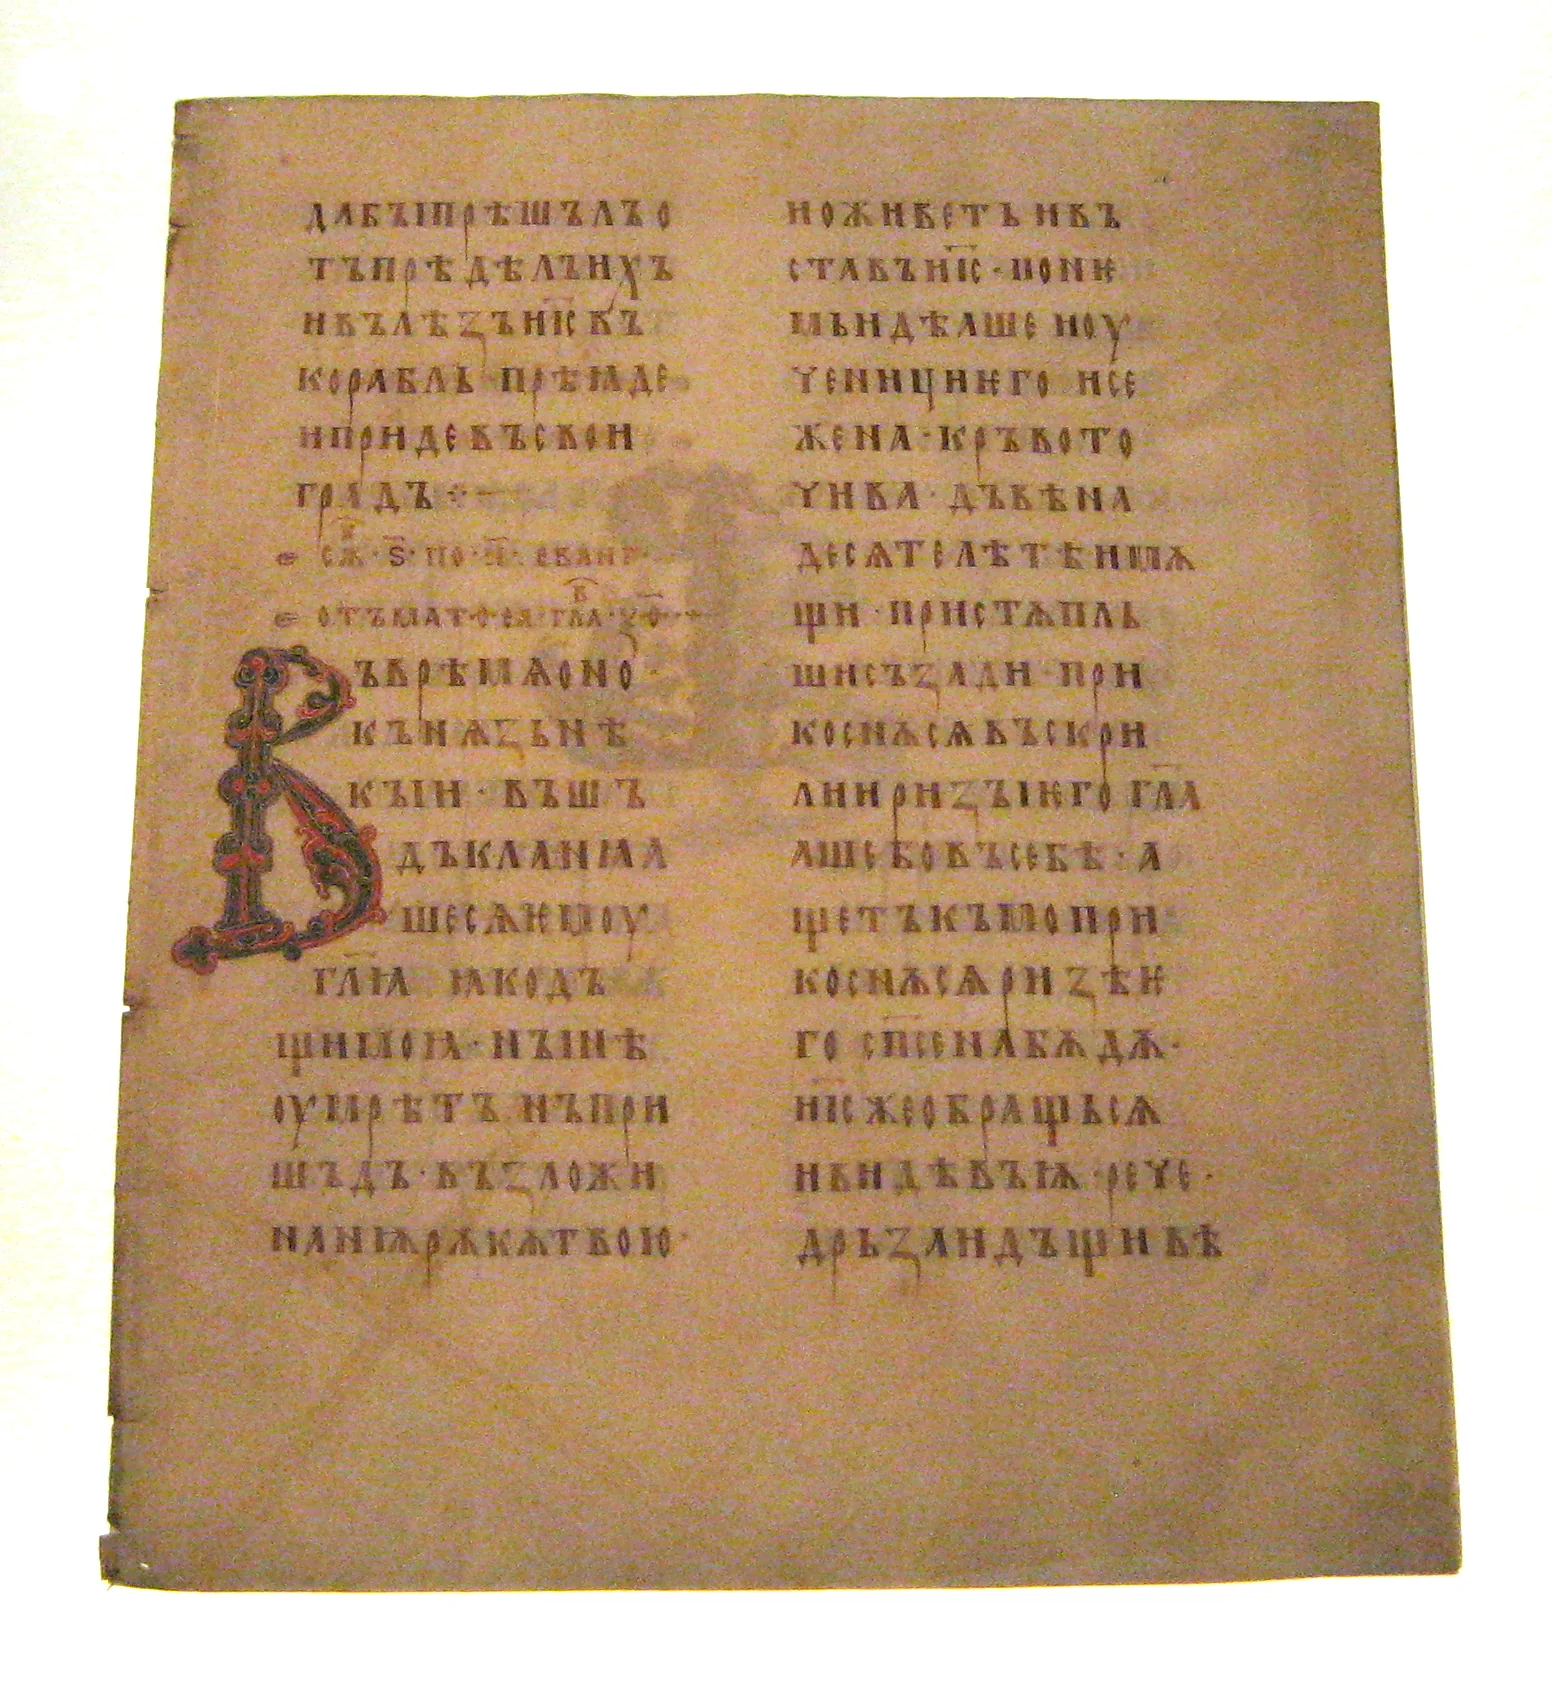 дабꙑ прѣшьлъ о
тъ прѣдѣлъ ихъ
и вълѣзъ и҃с въ
корабль · прѣѩде
и приде въ свои
градъ ·
сѫ · ѕ · по · н҃ · еванг ·
отъ мат·ѳеа · гла · х҃ѳ ·
Въ врѣмѧ оно ·
кънѧзь нѣ
кꙑи · въшъ
дъ кланꙗа
ше сѧ ѥмоу
гл҃ѧ ꙗко дъ
щи моꙗ · нꙑнѣ
оумрѣтъ нъ при
шьдъ · възложи
на нѭ рѫкѫ твою ·
и оживетъ и въ
ставъ и҃с · по нѥ
мь идѣаше и оу
ченици ѥго и се
жена · кръвото
чива · дъвѣ на
десѧте лѣтѣ имѫ
щи · пристѫпль
ши съзади · при
коснѫ сѧ въскри
лии ризꙑ ѥго гл҃а
аше бо въ себѣ · а
ще тъкъмо при
коснѫ сѧ ризѣ ѥ
го сп҃сена бѫдѫ ·
и҃с же обращь сѧ
и видѣвъ ѭ · рече ·
дрьзаи дъщи вѣ